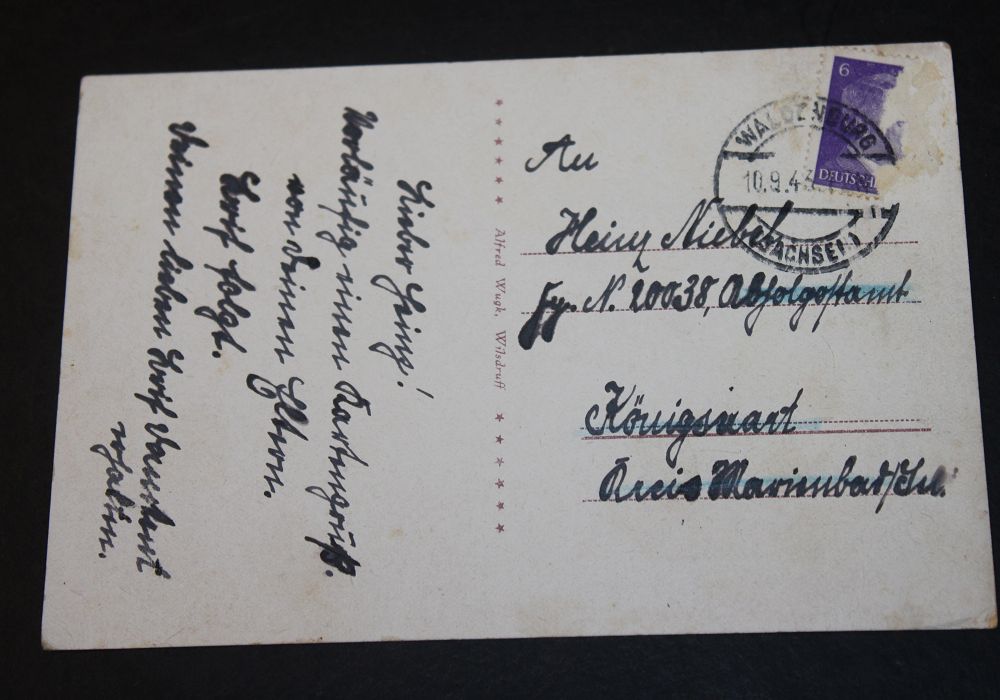 Lieber Heinz!
Vorläufig einen Kartengruß.
von Deinen Eltern.
Brief folgt.
Deinen lieben Brief dankend
erhalten.
★ ★ ★ ★ ★ ★ ★ ★ Alfred Wugk, Wilsdruff ★ ★ ★ ★ ★ ★ ★ ★
6
DEUTSCH
WALDENBURG
10.9.43
(SACHSEN)
An
Heinz Niebel
Fp. N. 20038, Abholpostamt
Königswart
Kreis Marienbad/